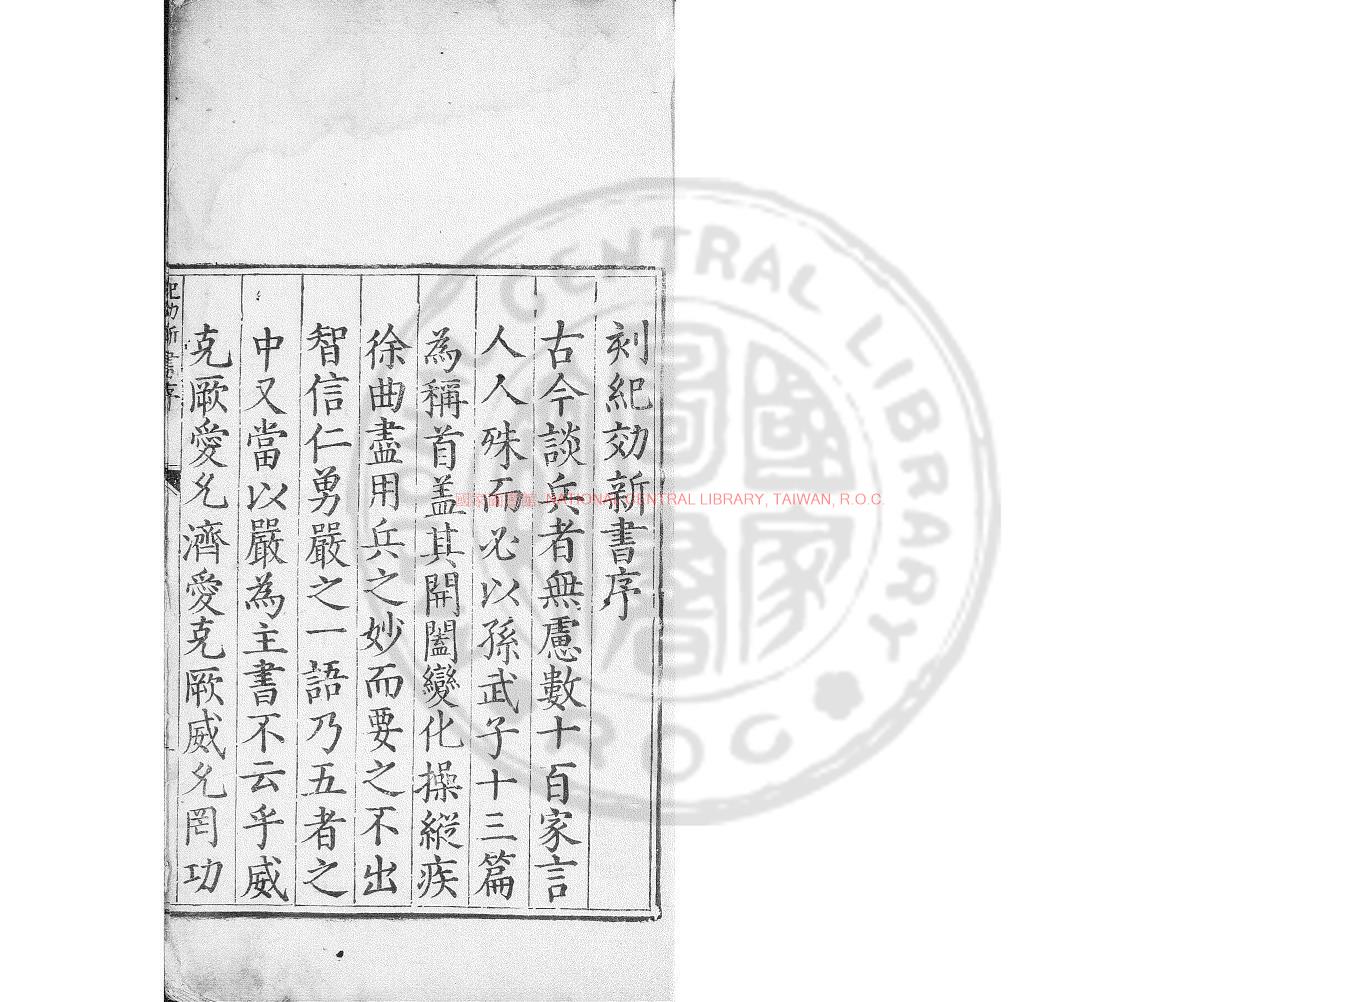 刻紀効新書序
古今談兵者無慮數十百家言
人人殊而必以孫武子十三篇
為稱首盖其開闔變化操縱疾
徐曲盡用兵之妙而要之不出
智信仁勇嚴之一語乃五者之
中又當以嚴為主書不云乎威
克厥愛允濟愛克厥威允罔功
紀効新書序
國家圖書館, NATIONAL CENTRAL LIBRARY, TAIWAN, R.O.C.
CENTRAL LIBRARY
ROC
國家圖書